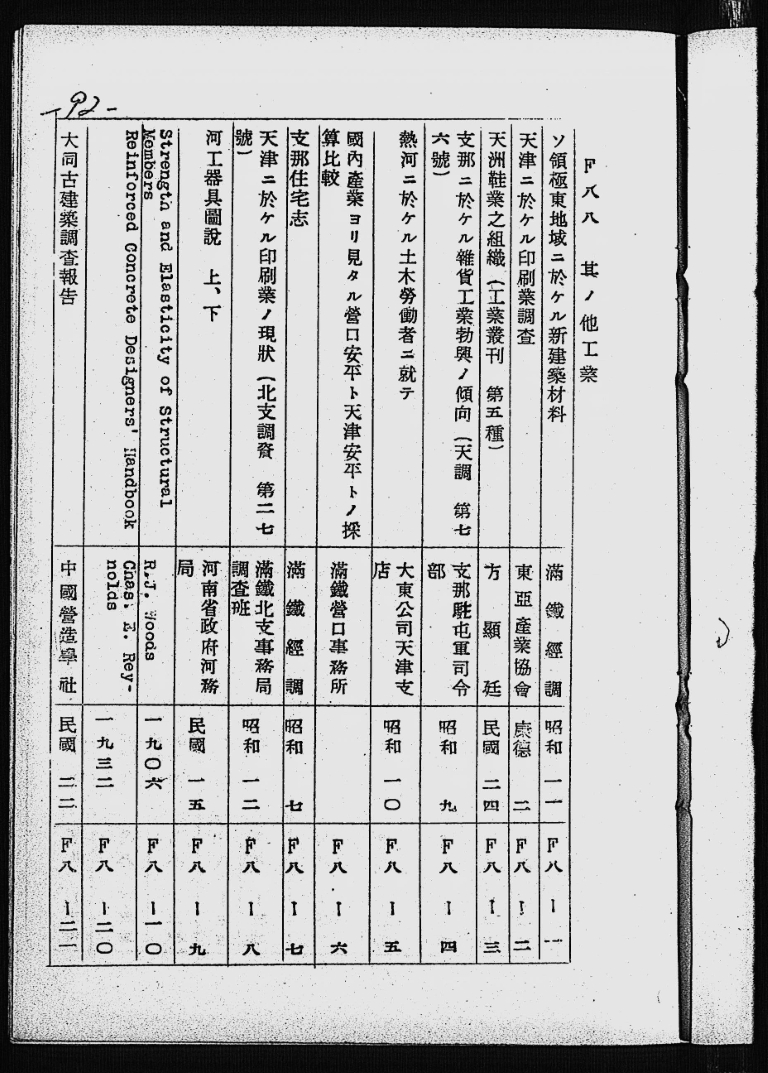 -92-
F八八　其ノ他工業
ソ領極東地域ニ於ケル新建築材料
滿鐵經調
昭和一一
F八ー一
天津ニ於ケル印刷業調查
東亞產業協會
康德二
F八ー二
天洲鞋業之組織（工業叢刊　第五種）
方顯廷
民國二四
F八ー三
支那ニ於ケル雜貨工業勃興ノ傾向（天調　第七
六號）
支那駐屯軍司令
部
昭和九
F八ー四
熱河ニ於ケル土木勞働者ニ就テ
大東公司天津支
店
昭和一〇
F八ー五
國內產業ヨリ見タル營口安平ト天津安平トノ採
算比較
滿鐵營口事務所
F八ー六
支那住宅志
滿鐵經調
昭和七
F八ー七
天津ニ於ケル印刷業ノ現狀（北支調資　第二七
號）
滿鐵北支事務局
調查班
昭和一二
F八ー八
河工器具圖說　上、下
河南省政府河務
局
民國一五
F八ー九
Strength and Elasticity of Structural
Members
R.J. Woods
一九〇六
F八ー一〇
Reinforced Concrete Designers' Handbook
Chas. E. Rey-
nolds
一九三二
F八ー二〇
大同古建築調查報告
中國營造學社
民國二二
F八ー二一